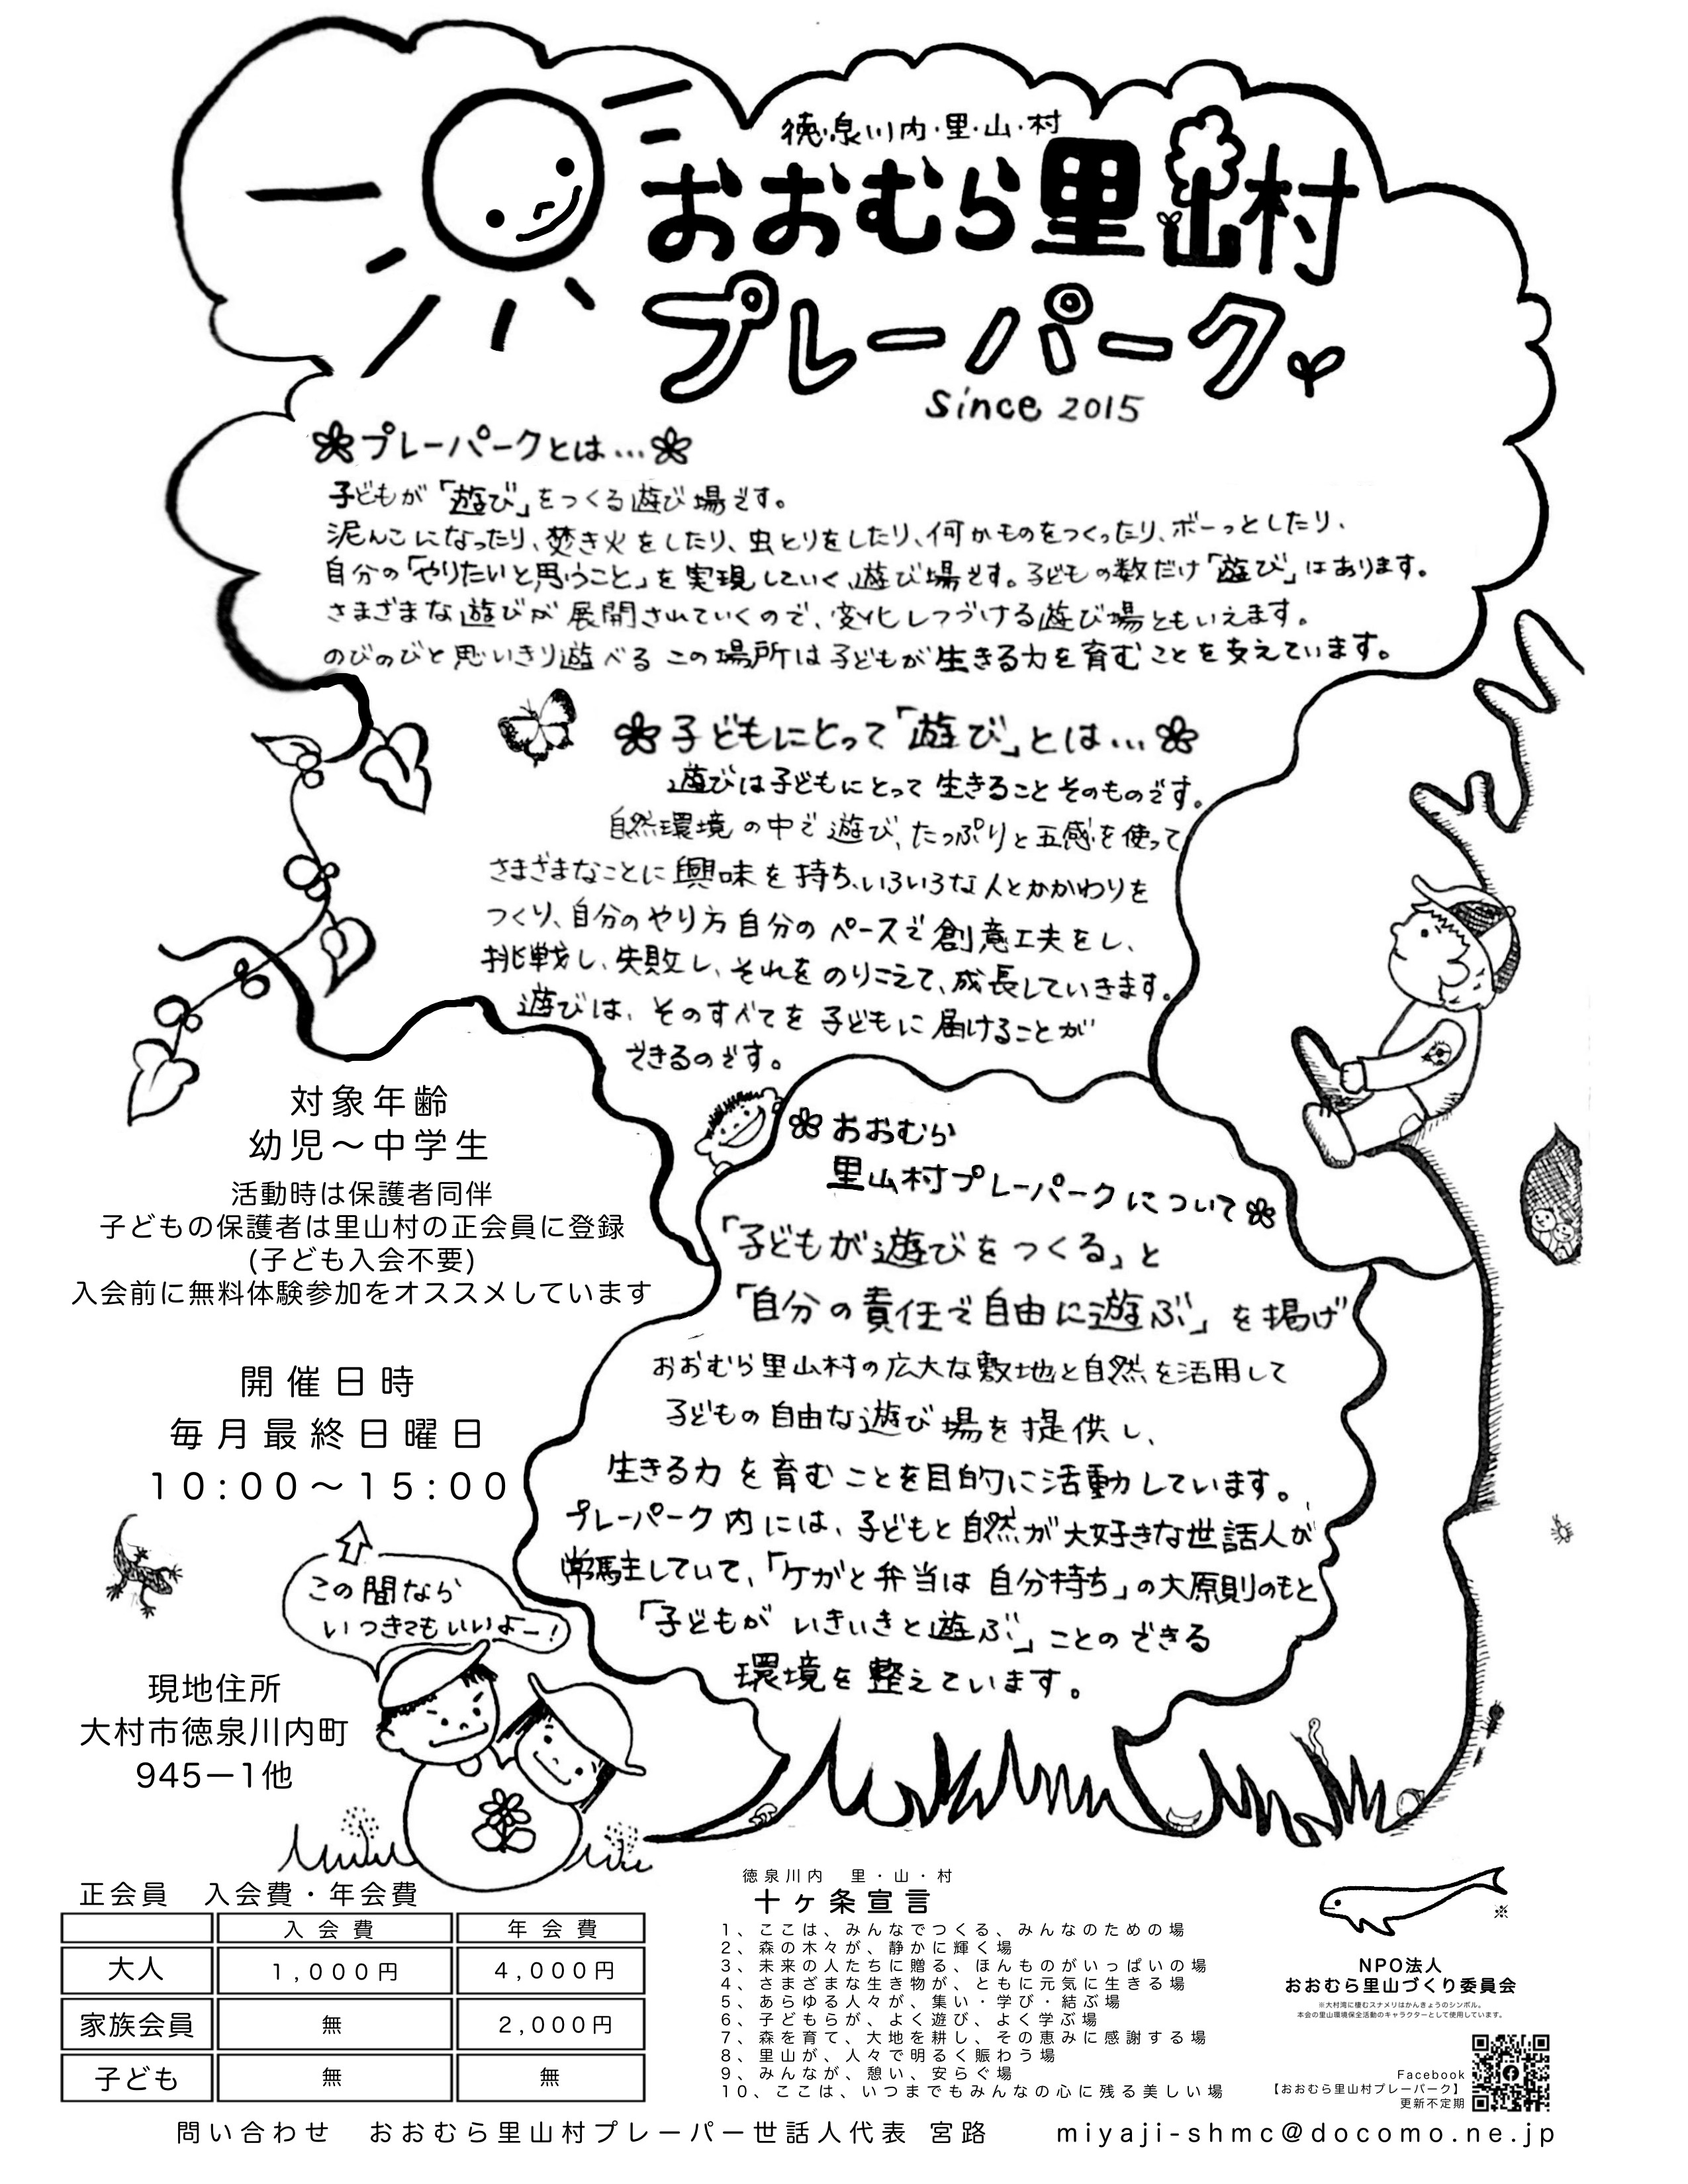 徳泉川内・里・山・村
おおむら里山村
プレーパーク
since 2015
プレーパークとは…
子どもが「遊び」をつくる遊び場です。
泥んこになったり、焚き火をしたり、虫とりをしたり、何かものをつくったり、ボーっとしたり、
自分の「やりたいと思うこと」を実現していく遊び場です。子どもの数だけ「遊び」はあります。
さまざまな遊びが展開されていくので、変化しつづける遊び場ともいえます。
のびのびと思いきり遊べるこの場所は子どもが生きる力を育むことを支えています。
子どもにとって「遊び」とは…
遊びは子どもにとって生きることそのものです。
自然環境の中で遊び、たっぷりと五感を使って
さまざまなことに興味を持ち、いろいろな人とかかわりを
つくり、自分のやり方自分のペースで創意工夫をし、
挑戦し、失敗し、それをのりこえて、成長していきます。
遊びは、そのすべてを子どもに届けることが
できるのです。
おおむら
里山村プレーパークについて
「子どもが遊びをつくる」と
「自分の責任で自由に遊ぶ」を掲げ
おおむら里山村の広大な敷地と自然を活用して
子どもの自由な遊び場を提供し、
生きる力を育むことを目的に活動しています。
プレーパーク内には、子どもと自然が大好きな世話人が
常駐していて、「ケガと弁当は自分持ち」の大原則のもと
「子どもがいきいきと遊ぶ」ことのできる
環境を整えています。
対象年齢
幼児～中学生
活動時は保護者同伴
子どもの保護者は里山村の正会員に登録
(子ども入会不要)
入会前に無料体験参加をオススメしています
開催日時
毎月最終日曜日
10:00～15:00
この間なら
いつきてもいいよー!
現地住所
大村市徳泉川内町
945ー1他
正会員　入会費・年会費
入会費 年会費
大人 1,000円 4,000円
家族会員 無 2,000円
子ども 無 無
徳泉川内　里・山・村
十ヶ条宣言
1、ここは、みんなでつくる、みんなのための場
2、森の木々が、静かに輝く場
3、未来の人たちに贈る、ほんものがいっぱいの場
4、さまざまな生き物が、ともに元気に生きる場
5、あらゆる人々が、集い・学び・結ぶ場
6、子どもらが、よく遊び、よく学ぶ場
7、森を育て、大地を耕し、その恵みに感謝する場
8、里山が、人々で明るく賑わう場
9、みんなが、憩い、安らぐ場
10、ここは、いつまでもみんなの心に残る美しい場
※
NPO法人
おおむら里山づくり委員会
※大村湾に棲むスナメリはかんきょうのシンボル。
本会の里山環境保全活動のキャラクターとして使用しています。
Facebook
【おおむら里山村プレーパーク】
更新不定期
問い合わせ　おおむら里山村プレーパー世話人代表 宮路　miyaji-shmc@docomo.ne.jp